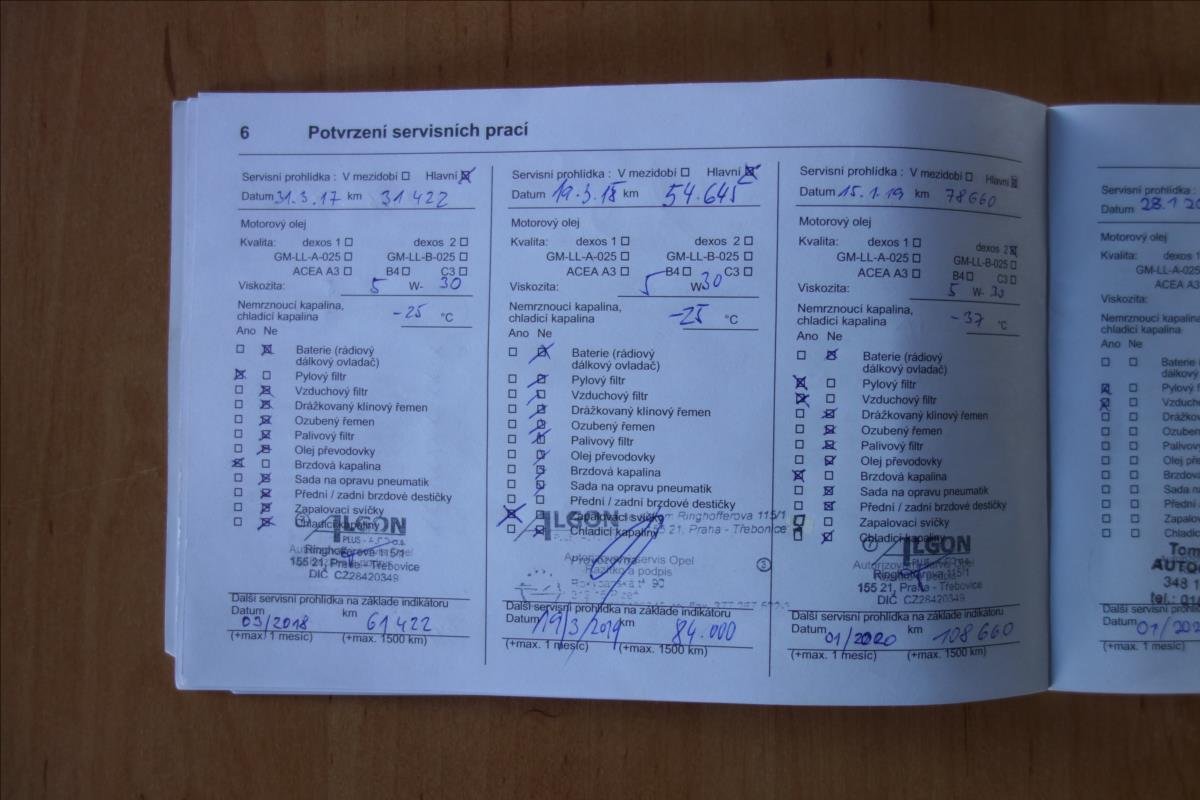 6 Potvrzení servisních prací
Servisní prohlídka : V mezidobí Hlavní
Datum 31.3.17 km 31 422
Motorový olej
Kvalita: dexos 1 dexos 2
GM-LL-A-025 GM-LL-B-025
ACEA A3 B4 C3
Viskozita: 5 W- 30
Nemrznoucí kapalina,
chladicí kapalina -25 °C
Ano Ne
Baterie (rádiový
dálkový ovladač)
Pylový filtr
Vzduchový filtr
Drážkovaný klínový řemen
Ozubený řemen
Palivový filtr
Olej převodovky
Brzdová kapalina
Sada na opravu pneumatik
Přední / zadní brzdové destičky
Zapalovací svíčky
Chladicí kapaliny
ALGON
PLUS
Ringhofferova 115/1
155 21, Praha - Třebovice
DIČ CZ28420349
Další servisní prohlídka na základě indikátoru
Datum 03/2018 km 61 422
(+max. 1 měsíc) (+max. 1500 km)
Servisní prohlídka : V mezidobí Hlavní
Datum 19.3.18 km 54.645
Motorový olej
Kvalita: dexos 1 dexos 2
GM-LL-A-025 GM-LL-B-025
ACEA A3 B4 C3
Viskozita: 5 W 30
Nemrznoucí kapalina,
chladicí kapalina -25 °C
Ano Ne
Baterie (rádiový
dálkový ovladač)
Pylový filtr
Vzduchový filtr
Drážkovaný klínový řemen
Ozubený řemen
Palivový filtr
Olej převodovky
Brzdová kapalina
Sada na opravu pneumatik
Přední / zadní brzdové destičky
Zapalovací svíčky
Chladicí kapaliny
ALGON
Ringhofferova 115/1
155 21, Praha - Třebovice
Autorizovaný servis Opel
Razítko a podpis
Další servisní prohlídka na základě indikátoru
Datum 19/3/2019 km 84.000
(+max. 1 měsíc) (+max. 1500 km)
Servisní prohlídka : V mezidobí Hlavní
Datum 15.1.19 km 78660
Motorový olej
Kvalita: dexos 1 dexos 2
GM-LL-A-025 GM-LL-B-025
ACEA A3 B4 C3
Viskozita: 5 W- 30
Nemrznoucí kapalina,
chladicí kapalina -37 °C
Ano Ne
Baterie (rádiový
dálkový ovladač)
Pylový filtr
Vzduchový filtr
Drážkovaný klínový řemen
Ozubený řemen
Palivový filtr
Olej převodovky
Brzdová kapalina
Sada na opravu pneumatik
Přední / zadní brzdové destičky
Zapalovací svíčky
Chladicí kapaliny
ALGON
Autorizovaný servis Opel
Ringhofferova 115/1
155 21, Praha - Třebovice
DIČ CZ28420349
Další servisní prohlídka na základě indikátoru
Datum 01/2020 km 108660
(+max. 1 měsíc) (+max. 1500 km)
Servisní prohlídka
Datum 28.1 20
Motorový olej
Kvalita: dexos
GM-LL-A-025
ACEA A3
Viskozita:
Nemrznoucí kapalin
chladicí kapalina
Ano Ne
Baterie
dálkový
Pylový f
Vzduch
Drážkov
Ozuben
Palivový
Olej pře
Brzdová
Sada na
Přední /
Zapalov
Chladic
Tom
AUTO
348 1
tel.:
Další servisní prohlíd
Datum 01/202
(+max. 1 měsíc)